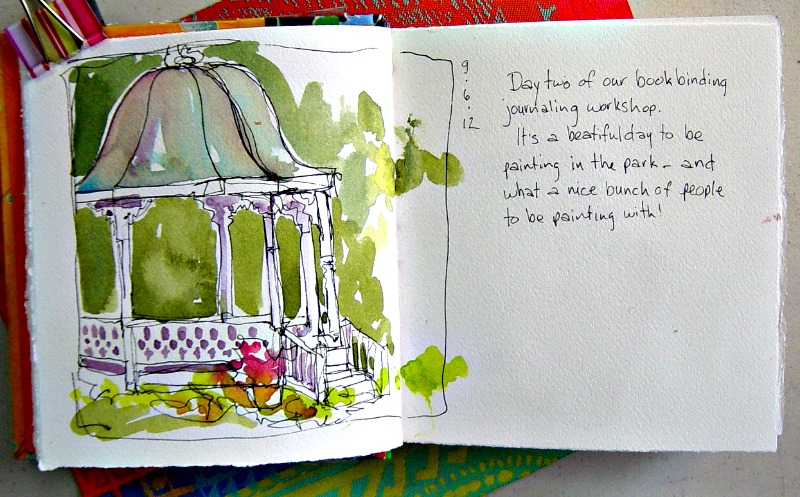 9
.
6
.
12
Day two of our bookbinding
journaling workshop.
It's a beatiful day to be
painting in the park - and
what a nice bunch of people
to be painting with!